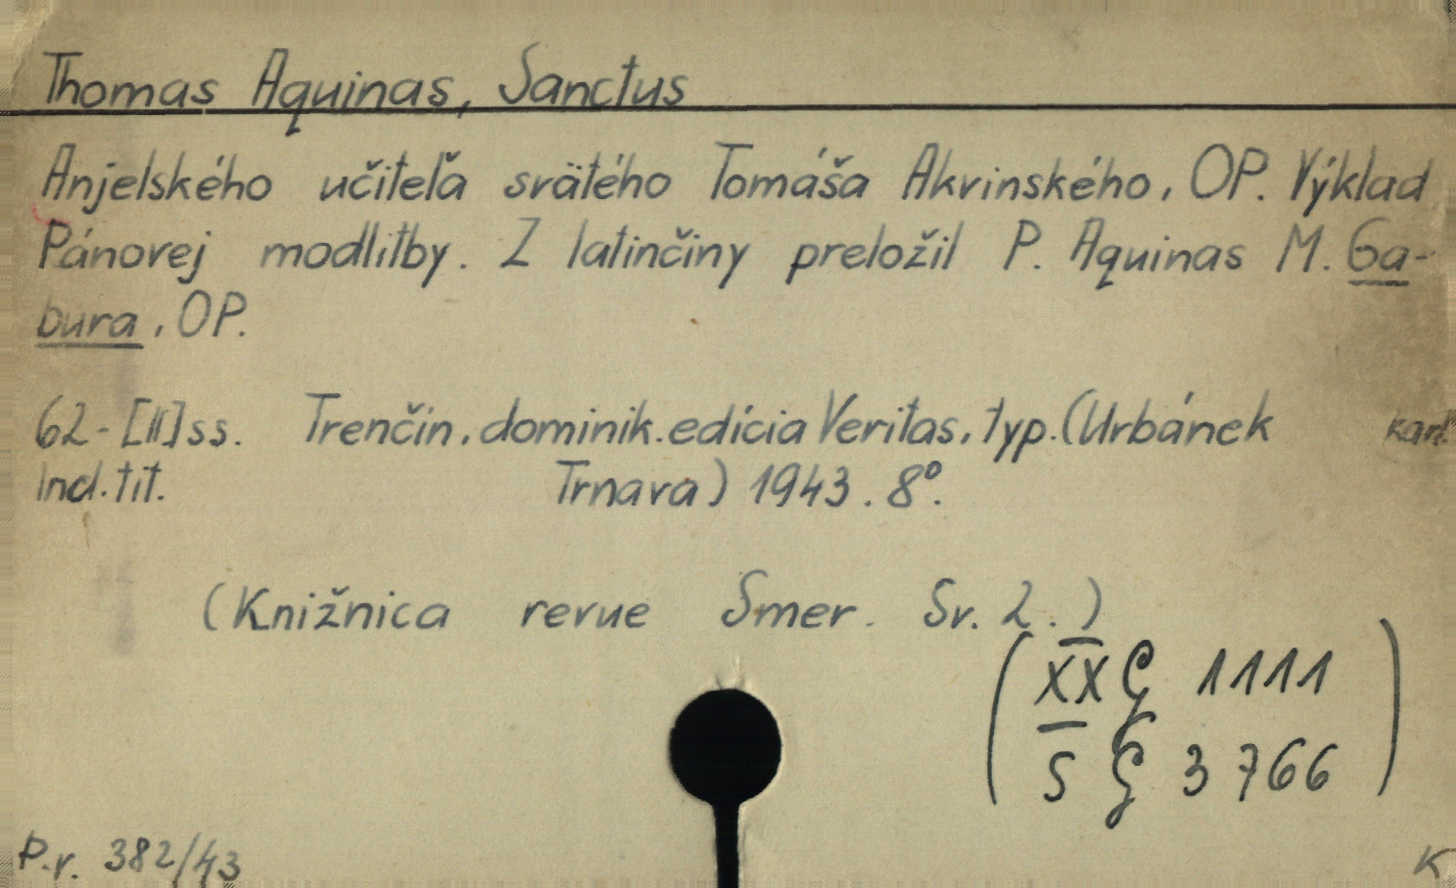 Thomas Aquinas, Sanctus
Anjelského učiteľa svätého Tomáša Akvinského, OP. Výklad
Pánovej modlitby. Z latinčiny preložil P. Aquinas M. Ga-
bura, OP.
62-[II] ss. Trenčín, dominik. edícia Veritas, typ. (Urbánek kart.
Incl. tit. Trnava) 1943. 8°.
(Knižnica revue Smer. Sv. 2.)
(XX G 1111
S G 3766)
P.r. 382/43
K